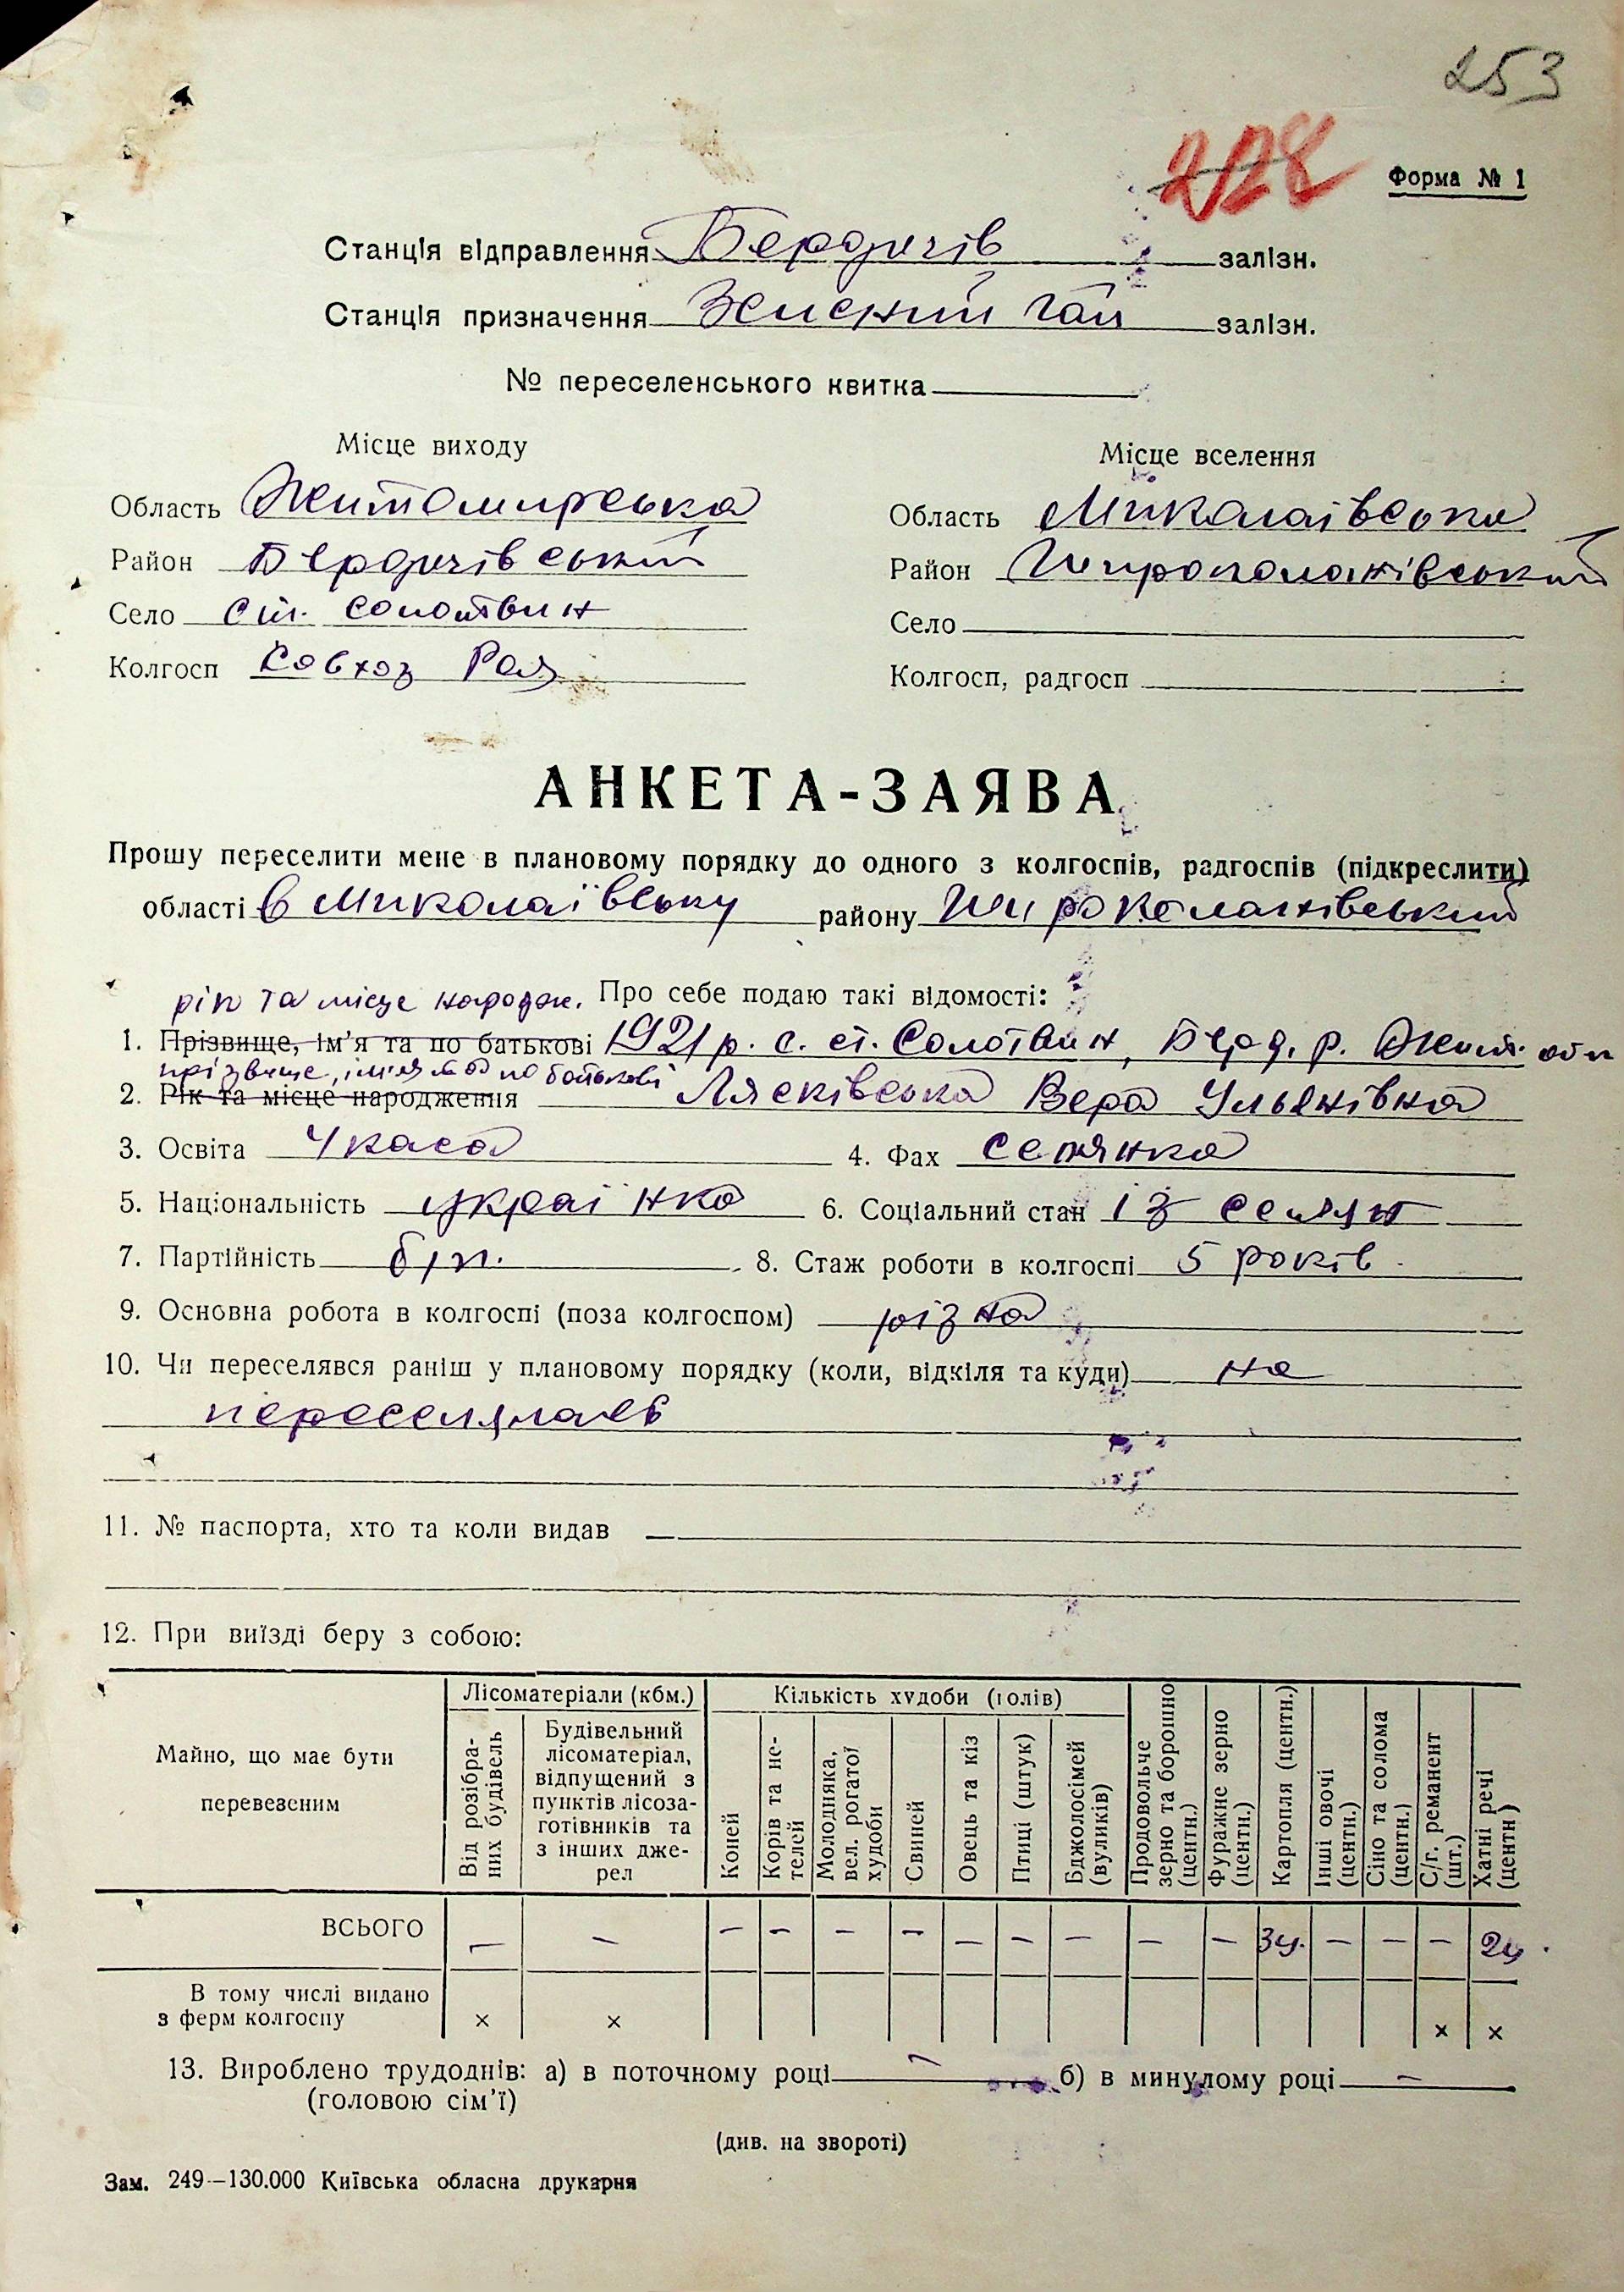 253
228
Форма № 1
Станція відправлення Бердичів залізн.
Станція призначення гай залізн.
№ переселенського квитка
Місце виходу
Місце вселення
Область Житомирська
Область Миколаївська
Район Бердичівський
Район Широколанівський
Село ст. Солотвин
Село
Колгосп Совхоз Рая
Колгосп, радгосп
АНКЕТА-ЗАЯВА
Прошу переселити мене в плановому порядку до одного з колгоспів, радгоспів (підкреслити)
області в Миколаївську району Широколанівський
рік та місце народж. Про себе подаю такі відомості:
1. Прізвище, ім'я та по батькові 1921 р. с. ст. Солотвин, Берд. р. Жит. обл
прізвище, ім'я та по батькові
2. Рік та місце народження Лясківська Вера Ульянівна
3. Освіта 4 класа 4. Фах селянка
5. Національність українка 6. Соціальний стан із селян
7. Партійність б/п. 8. Стаж роботи в колгоспі 5 років.
9. Основна робота в колгоспі (поза колгоспом) різна
10. Чи переселявся раніш у плановому порядку (коли, відкіля та куди) не
переселялась
11. № паспорта, хто та коли видав —
12. При виїзді беру з собою:
Майно, що має бути перевезеним
Лісоматеріали (кбм.)
Кількість худоби (голів)
Від розібра-
них будівель
Будівельний
лісоматеріал,
відпущений з
пунктів лісоза-
готівників та
з інших дже-
рел
Коней
Корів та не-
телей
Молодняка,
вел. рогатої
худоби
Свиней
Овець та кіз
Птиці (штук)
Бджолосімей
(вуликів)
Продовольче
зерно та борошно
(центн.)
Фуражне зерно
(центн.)
Картопля (центн.)
Інші овочі
(центн.)
Сіно та солома
(центн.)
С/г. реманент
(шт.)
Хатні речі
(центн)
ВСЬОГО — — — — — — — — — — — 3ц. — — — 2ц.
В тому числі видано
з ферм колгоспу × × × ×
13. Вироблено трудоднів: а) в поточному році — б) в минулому році —
(головою сім'ї)
(див. на звороті)
Зам. 249—130.000 Київська обласна друкарня